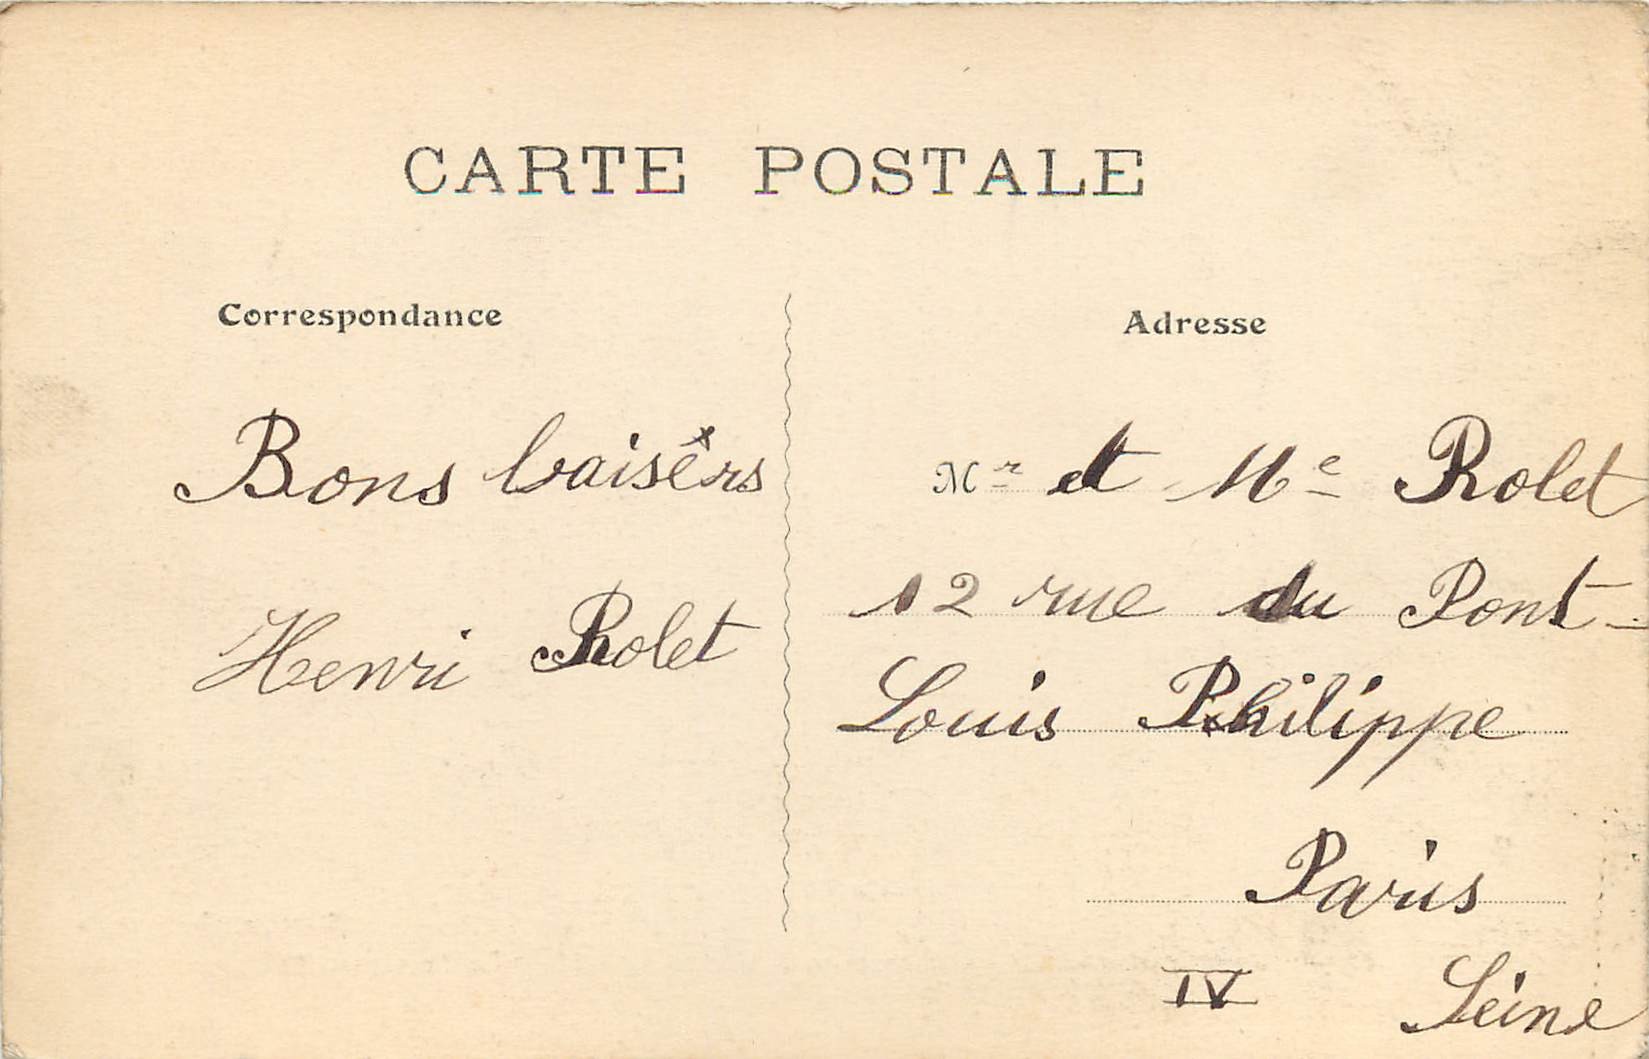 CARTE POSTALE
Correspondance
Bons baisers
Henri Rolet
Adresse
Mr et Me Rolet
12 rue du Pont-
Louis Philippe
Paris
IV Seine